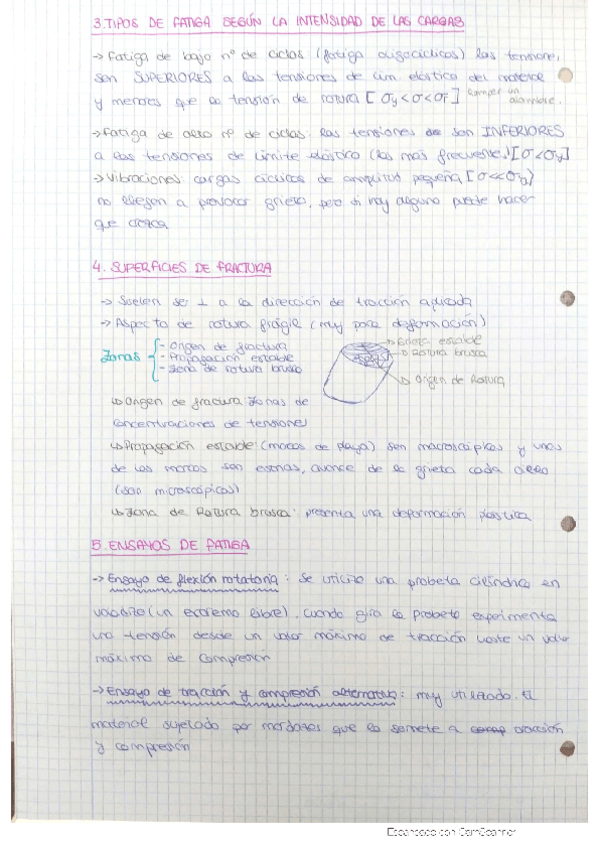 3.TIPOS DE FATIGA SEGÚN LA INTENSIDAD DE LAS CARGAS
→ Fatiga de bajo nº de ciclos (fatiga oligocíclicos) las tensiones
son SUPERIORES a las tensiones de lím elástico del material
y menores que la tensión de rotura [σy<σ<σr] Romper un
alambre.
→ Fatiga de alto nº de ciclos: las tensiones son INFERIORES
a las tensiones de límite elástico (las más frecuentes) [σ<σy]
→ Vibraciones: cargas cíclicas de amplitud pequeña [σ<<σy)
no llegan a provocar grieta, pero si hay alguna puede hacer
que crezca
4. SUPERFICIES DE FRACTURA
→ Suelen ser ⊥ a la dirección de tracción aplicada
→ Aspecto de rotura frágil (muy poca deformación)
Zonas
- Origen de fractura
- Propagación estable
- Zona de rotura brusca
→ Grieta estable
→ Rotura brusca
→ Origen de Rotura
↳ Origen de fractura: zonas de
concentraciones de tensiones
↳ Propagación estable: (marcas de playa) son macroscópicas y unas
de las marcas son estrías, avance de la grieta cada ciclo
(son microscópicas)
↳ Zona de Rotura brusca: presenta una deformación plástica
5. ENSAYOS DE FATIGA
→ Ensayo de flexión rotatoria: Se utiliza una probeta cilíndrica en
voladizo (un extremo libre). Cuando gira la probeta experimenta
una tensión desde un valor máximo de tracción hasta un valor
máximo de compresión
→ Ensayo de tracción y compresión alternativa: muy utilizado. El
material sujetado por mordazas que lo somete a tracción
y compresión
Escaneado con CamScanner